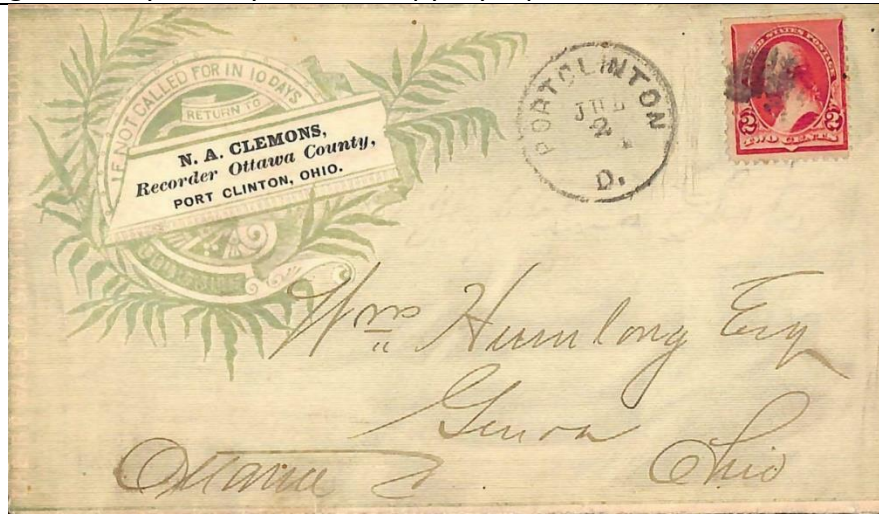 IF NOT CALLED FOR IN 10 DAYS
RETURN TO
N. A. CLEMONS,
Recorder Ottawa County,
PORT CLINTON, OHIO.
PORT CLINTON
2
O.
UNITED STATES POSTAGE
2 2
TWO CENTS
Wms Humlong Esq
Genoa
Ottawa Ohio